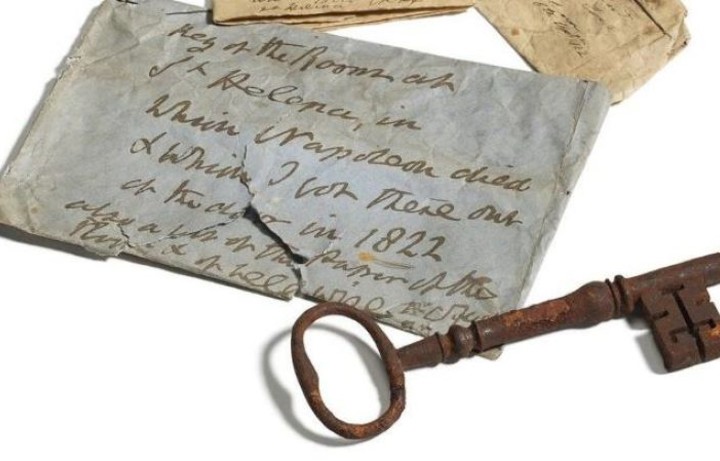 Key of the Room at
St Helena, in
which Napoleon died
& which I got there out
of the door in 1822
also a bit of the paper of the